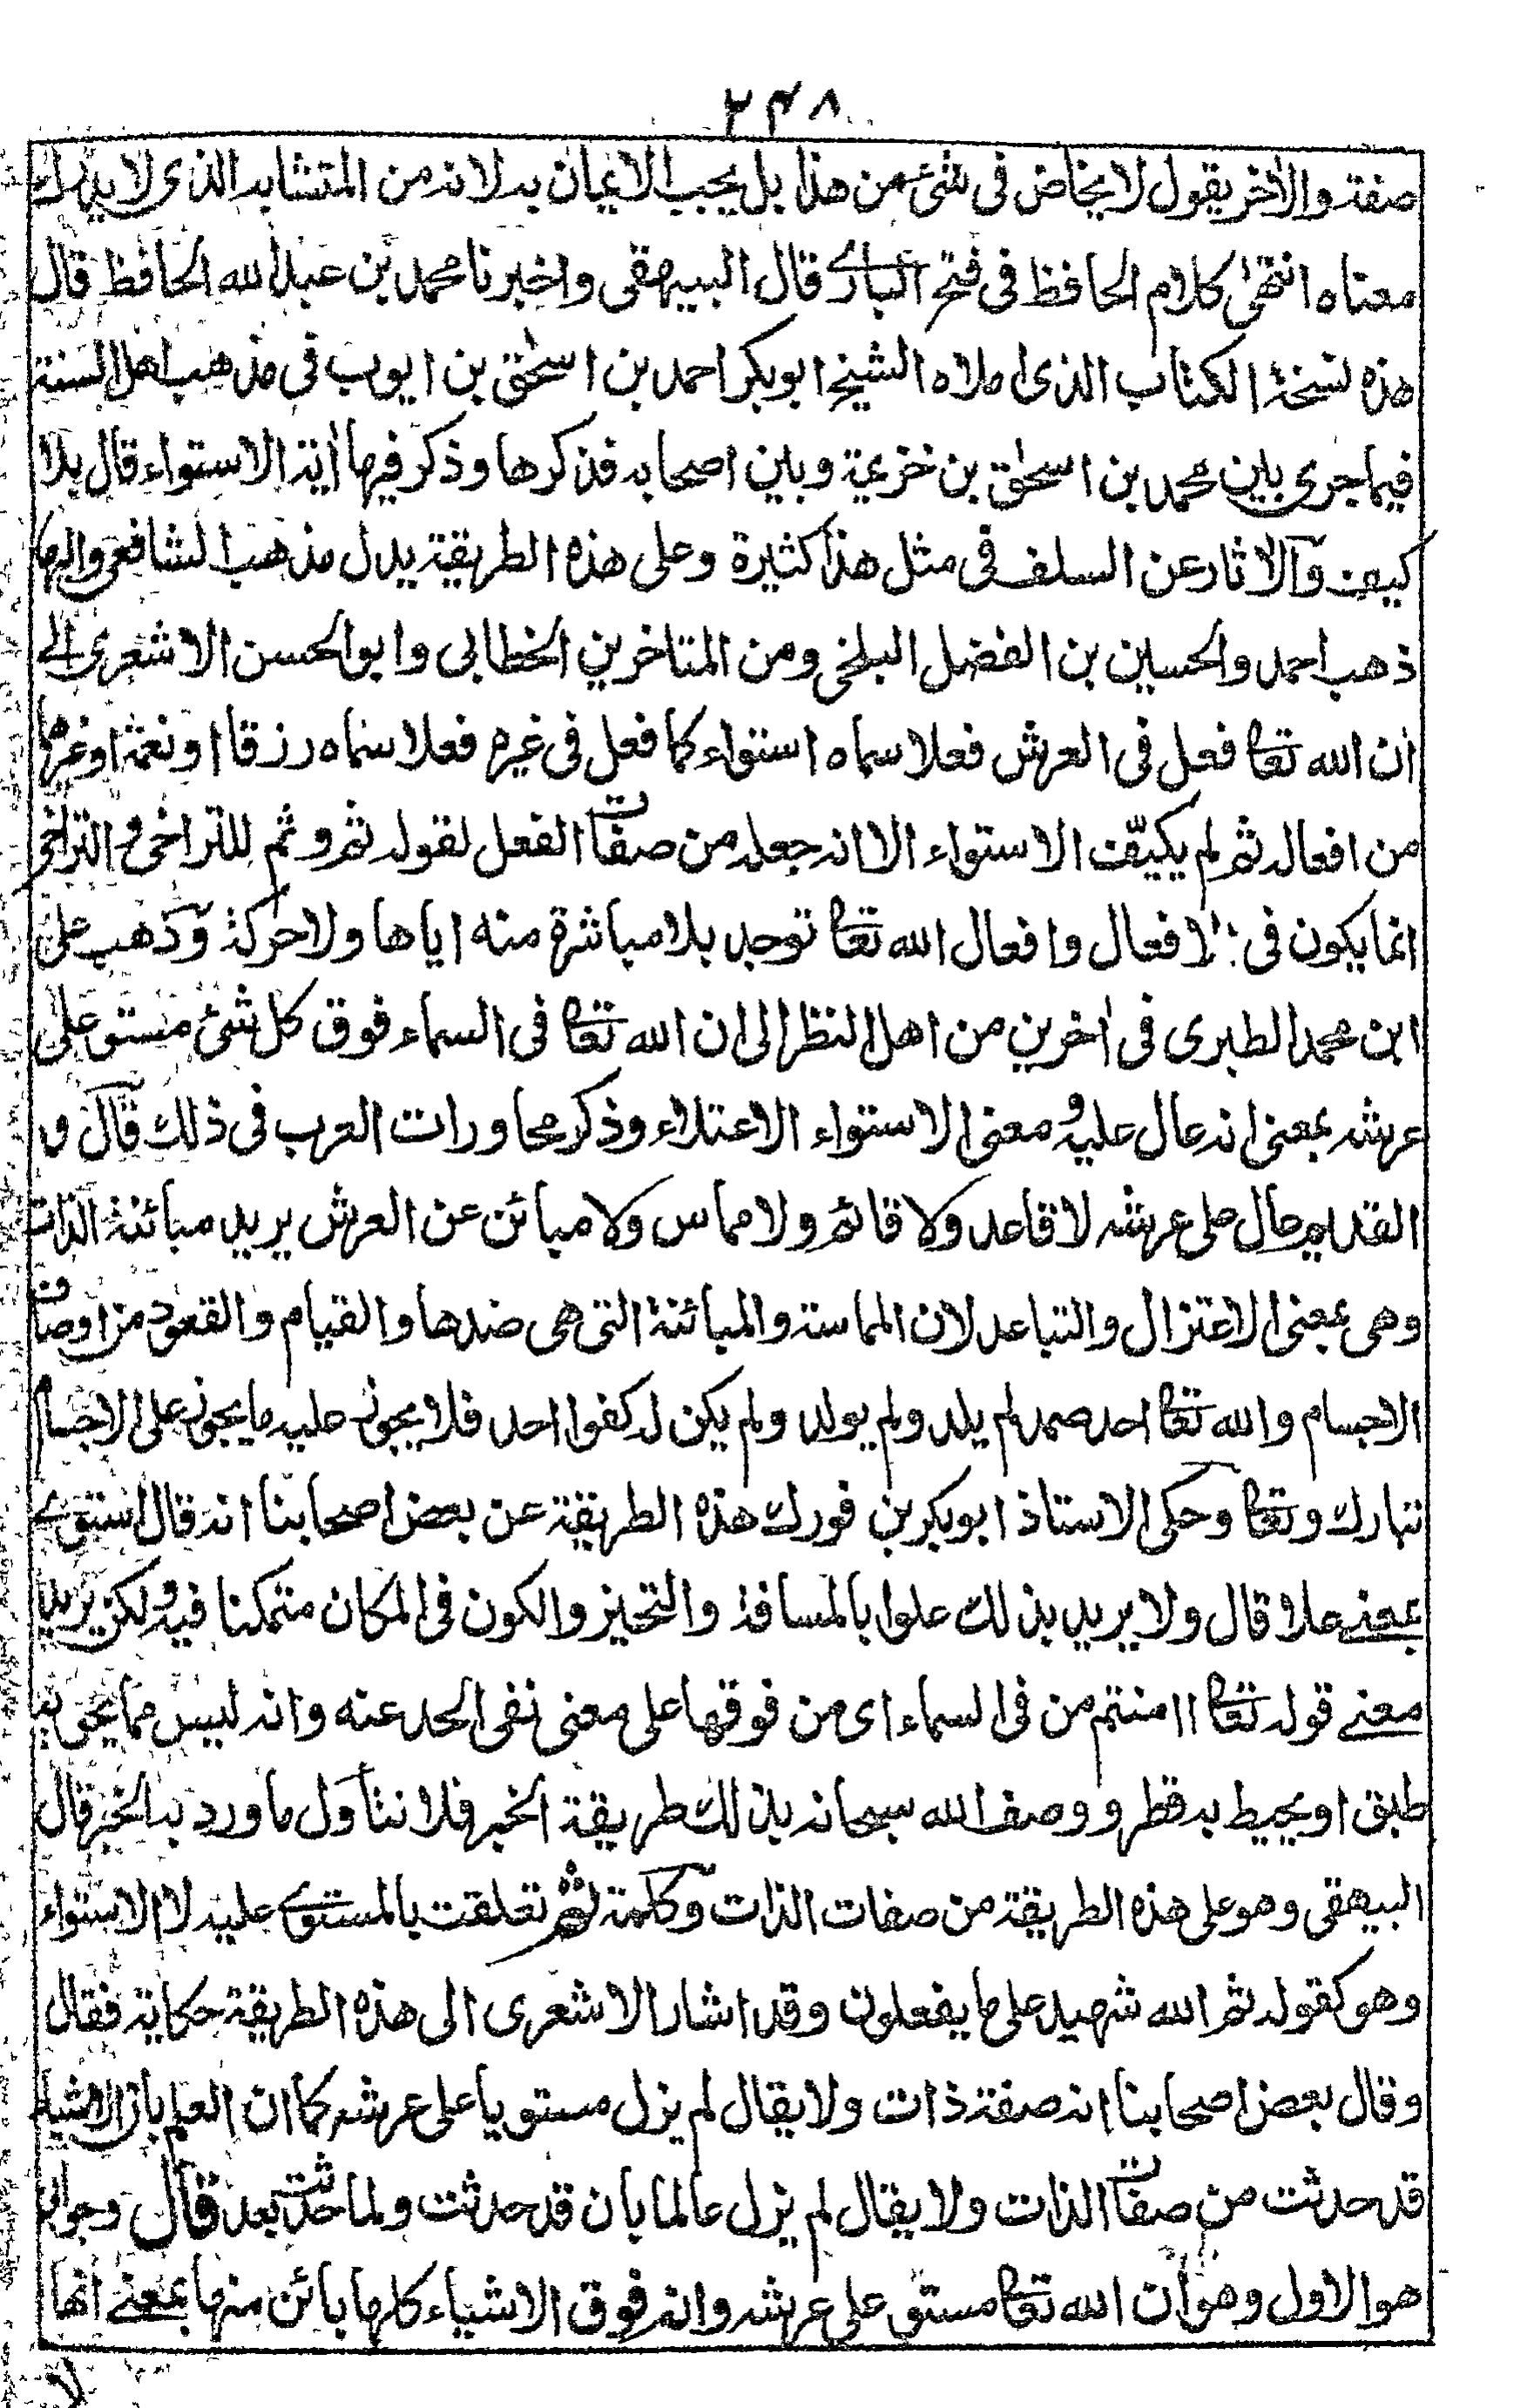 ٢٤٨
صفته والآخر يقول لا يخاض فى شئ من هذا بل يجب الايمان به لانه من المتشابه الذى لا يدرك
معناه انتهى كلام الحافظ فى فتح البارى قال البيهقى واخبرنا محمد بن عبد الله الحافظ قال
هذه نسخة الكتاب الذى املاه الشيخ ابو بكر احمد بن اسحٰق بن ايوب فى مذهب اهل السنة
فيما جرى بين محمد بن اسحٰق بن خزيمة وبين اصحابه فذكرها وذكر فيها اٰية الاستواء قال بلا
كيف والآثار عن السلف فى مثل هذا كثيرة وعلى هذه الطريقة يدل مذهب الشافعى واليها
ذهب احمد والحسين بن الفضل البلخى ومن المتاخرين الخطابى وابو الحسن الاشعرى الى
ان الله تعا فعل فى العرش فعلا سماه استواء كما فعل فى غيره فعلا سماه رزقا او نعمة او غيرهما
من افعاله ثم لم يكيّف الاستواء الا انه جعله من صفات الفعل لقوله ثم وثم للتراخى والتراخى
انما يكون فى الافعال وافعال الله تعا توجد بلا مباشرة منه اياها ولا حركة وذهب على
ابن محمد الطبرى فى اٰخرين من اهل النظر الى ان الله تعا فى السماء فوق كل شئ مستو على
عرشه بمعنى انه عال عليه ومعنى الاستواء الاعتلاء وذكر محاورات العرب فى ذلك قال و
القديم عال على عرشه لا قاعد ولا قائم ولا مماس ولا مبائن عن العرش يريد مبائنة الذات
وهى بمعنى الاعتزال والتباعد لان المماسة والمبائنة التى هى ضدها والقيام والقعود من اوصاف
الاجسام والله تعا احد صمد لم يلد ولم يولد ولم يكن له كفوا احد فلا يجوز عليه ما يجوز على الاجسام
تبارك وتعا وحكى الاستاذ ابو بكر بن فورك هذه الطريقة عن بعض اصحابنا انه قال استوى
بمعنى علا قال ولا يريد بذلك علوا بالمسافة والتحيز والكون فى المكان متمكنا فيه ولكن يريد
معنى قوله تعا اامنتم من فى السماء اى من فوقها على معنى نفى الحد عنه وانه ليس مما يحويه
طبق او يحيط به قطر ووصف الله سبحانه بذلك طريقة الخبر فلا نتأول ما ورد به الخبر قال
البيهقى وهو على هذه الطريقة من صفات الذات وكلمة ثم تعلقت بالمستوى عليه لا الاستواء
وهو كقوله ثم الله شهيد على ما يفعلون وقد اشار الاشعرى الى هذه الطريقة حكاية فقال
وقال بعض اصحابنا انه صفة ذات ولا يقال لم يزل مستويا على عرشه كما ان العلم بان الاشياء
قد حدثت من صفات الذات ولا يقال لم يزل عالما بان قد حدثت ولما حدثت بعد قال وجوابى
هو الاول وهو ان الله تعا مستو على عرشه وانه فوق الاشياء كلها بائن منها بمعنى انها
لا